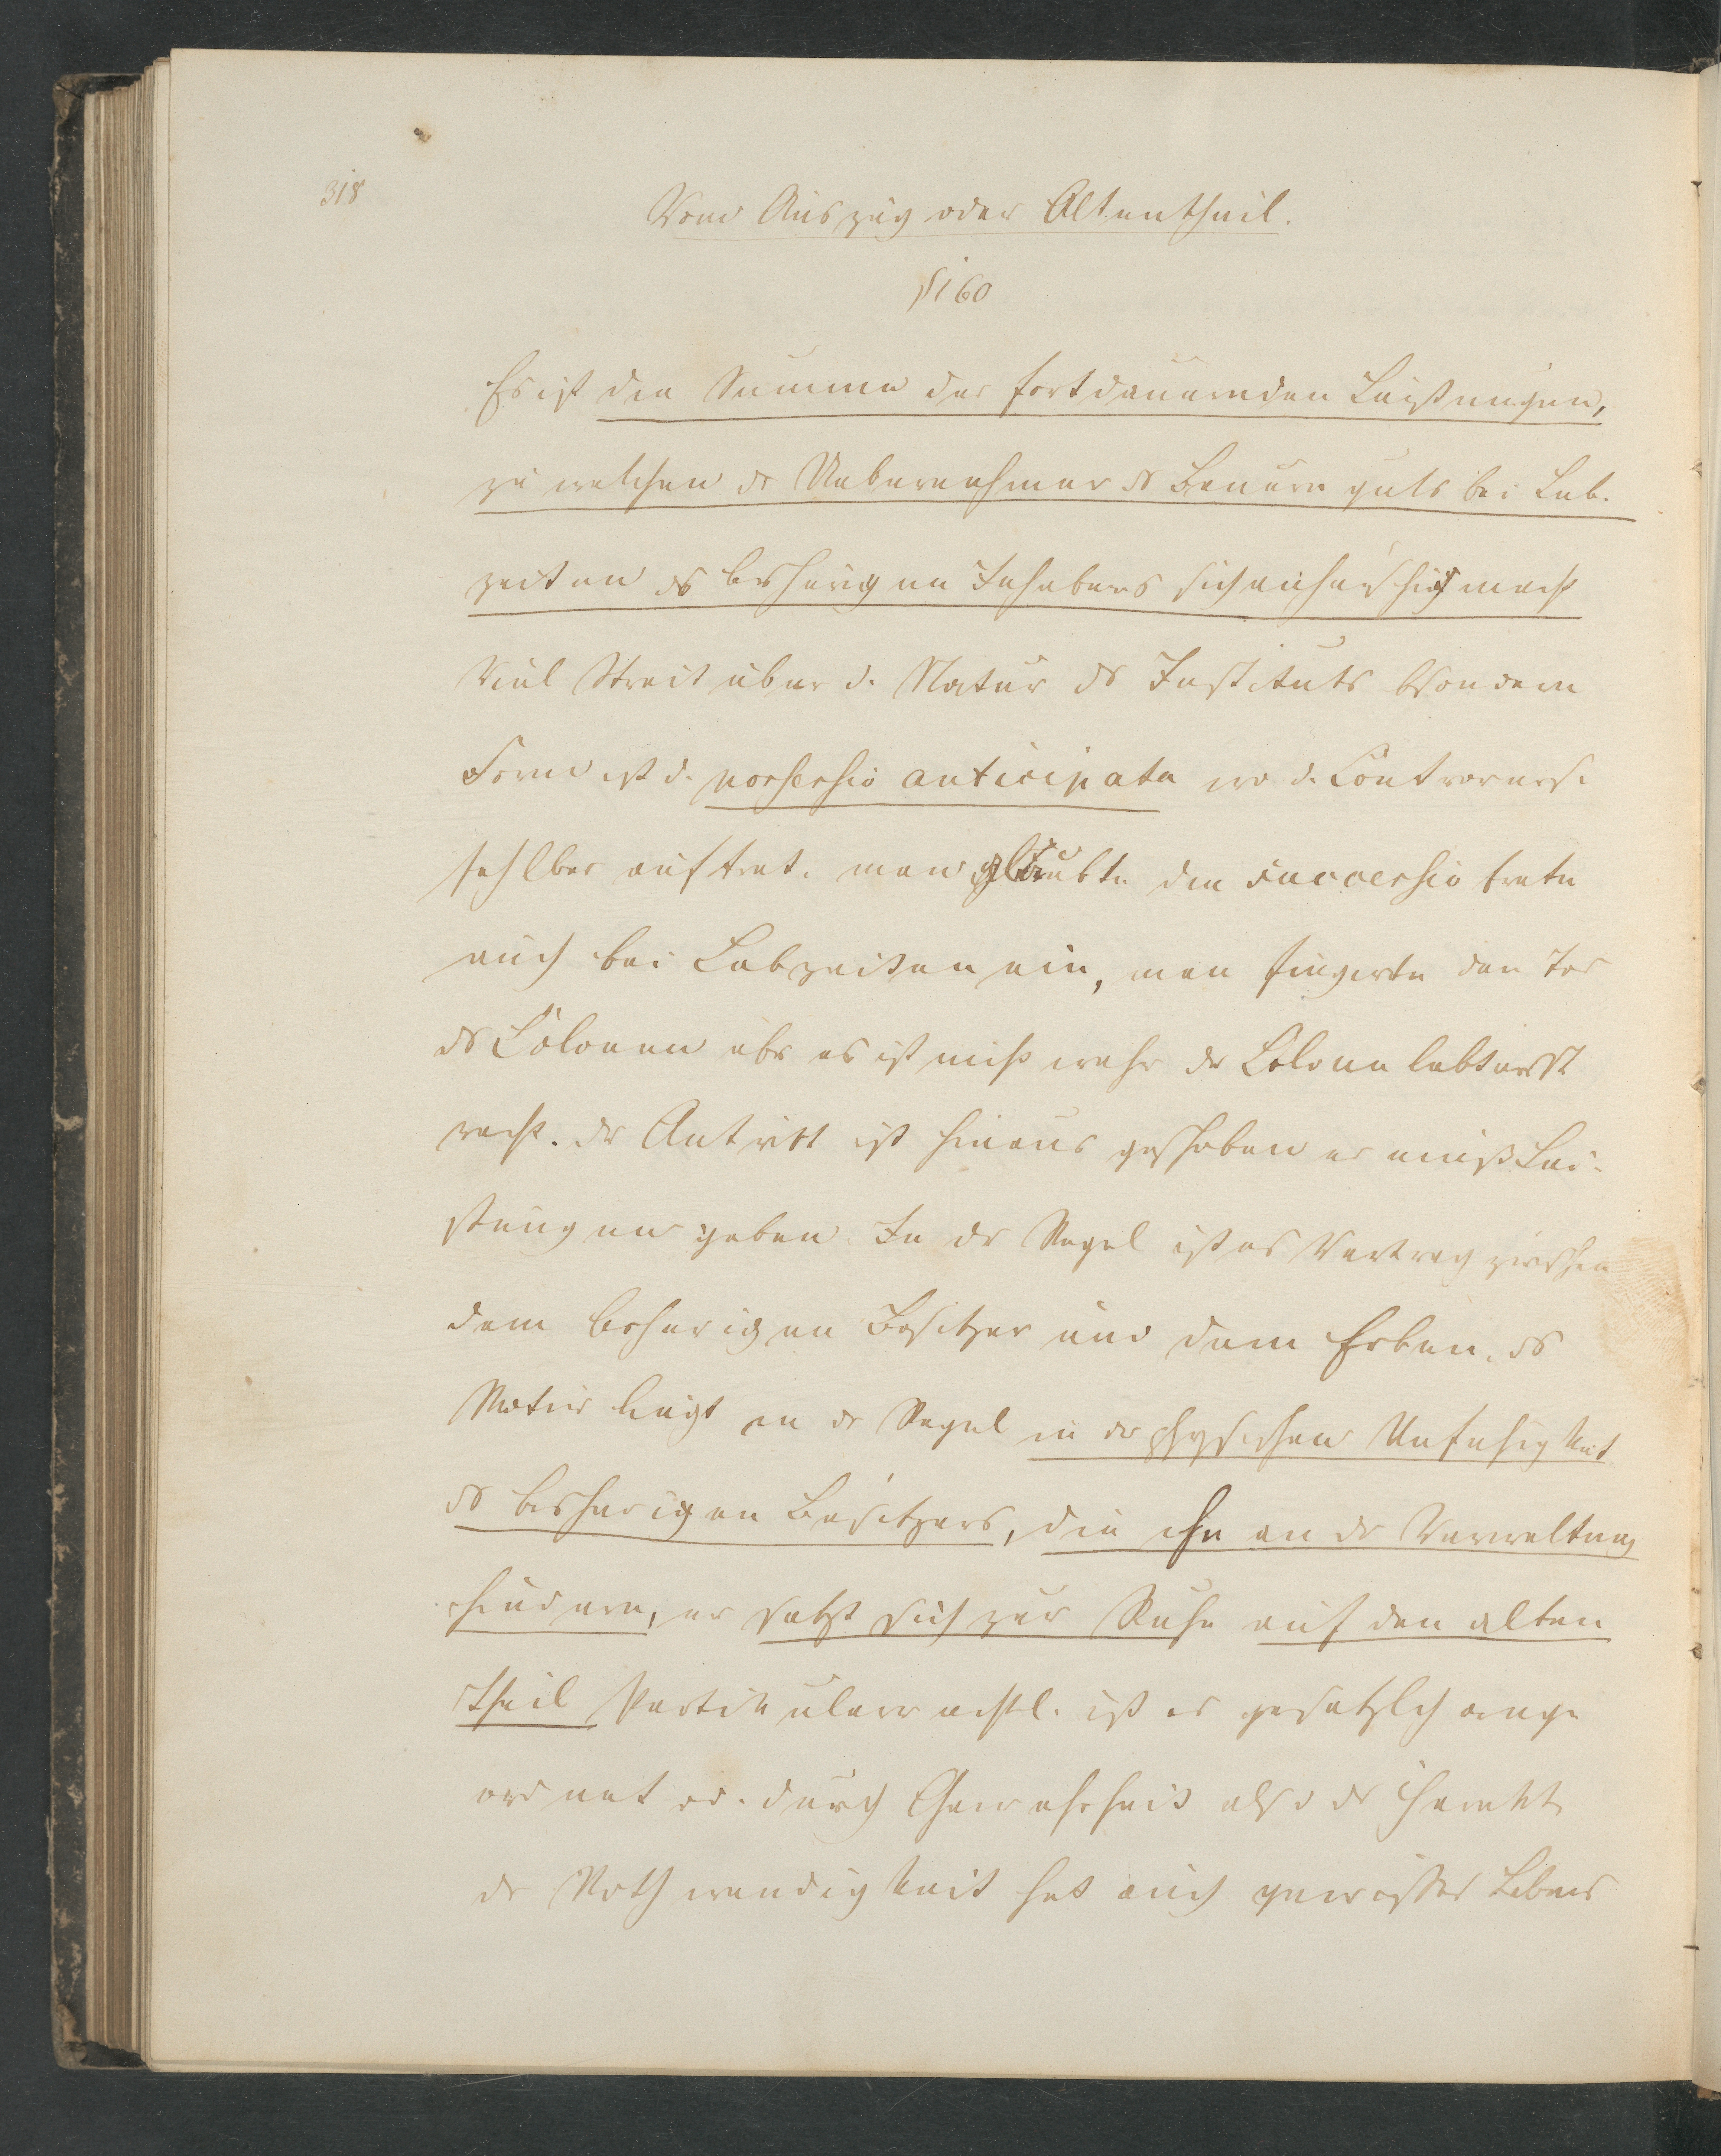 318
Vom Auszug oder Altentheil.
§160
Es ist die Summe der fortdauernden Leistungen,
zu welchen dr Uebernehmer ds Bauern guts bei Leb-
zeiten ds bisherigen Inhabers sich anheischig macht
Viel Streit über d. Natur ds Instituts bsondere
Form ist d. possessio anticipata wo d. Controvers.
selber auftrat. man glaubte die successio trete
auch bei Lebzeiten ein, man fingirte den Tod
ds Colonen abr es ist nicht wahr dr Colone lebt erst
recht. Dr Antritt ist hinaus geschoben er muß Lei-
stungen geben. In dr Regel ist es Vertrag zwischen
dem bisherigen Besitzer und dem Erben. ds
Motiv liegt in dr Regel in dr physischen Unfahigkeit
ds bisherigen Besitzers, die ihn an dr Verwaltung
hindern, er setzt sich zur Ruhe auf den alten
theil Partikularrechtl. ist es gesetzlich ange
ordnet od. durch Gewohnheit also dr Charakt.
dr Nothwendigkeit hat auch gewisses